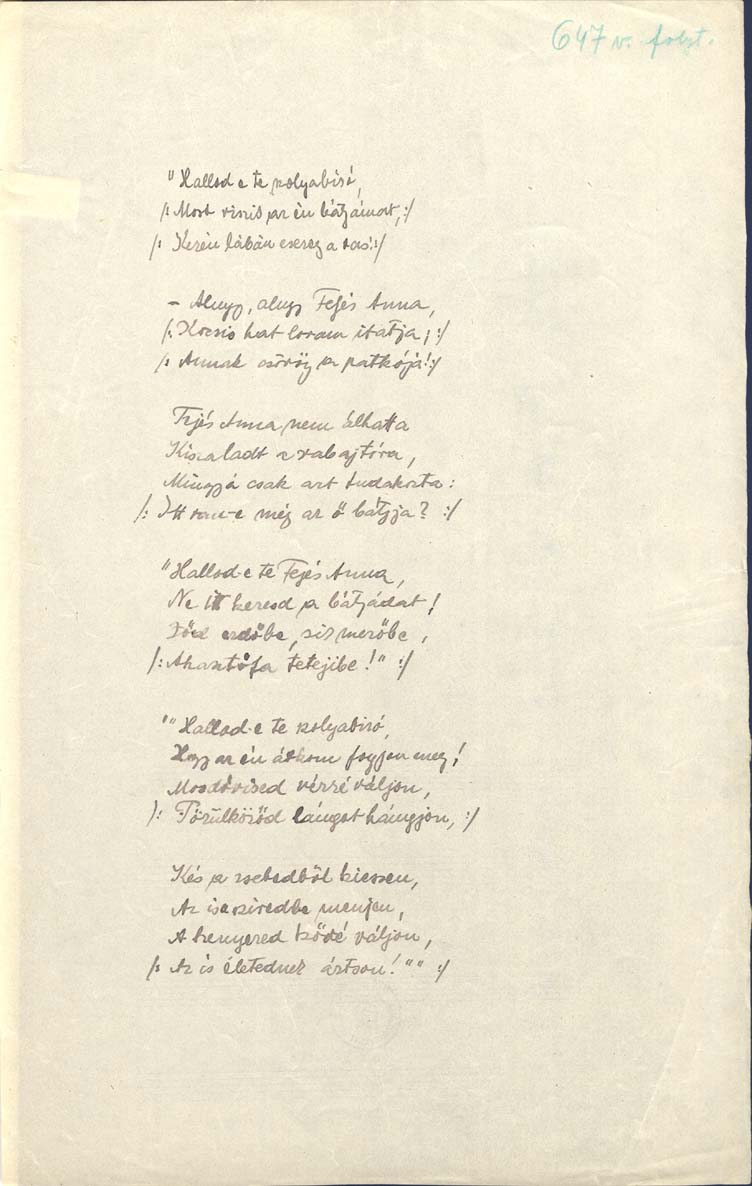 647 v. folyt.
"Hallod-e te szolyabiró,
/: Most viszis az én bátyámat, :/
/: Kezén lábán csereg a vas! :/
– Alugy, alugy Fejés Anna,
/: Kocsis hat lovam itatja; :/
/: Annak csörög a patkójá! :/
Fejés Anna nem álhatta
Kiszaladt a rabajtóra,
Mingyá csak azt tudakozta:
/: Itt van-e még az ő bátyja? :/
"Hallod-e te Fejés Anna,
Ne itt keresd a bátyádat!
Ződ erdőbe, siz merőbe,
/: Akasztófa tetejibe!" :/
"Hallod-e te szolyabiró,
Hogy az én átkom fogjon meg!
Mosdóvized vérré váljon,
/: Törülköződ lángot hányjon, :/
Kés a zsebedből kiessen,
Az is a szivedbe menjen,
A kenyered kődé váljon,
/: Az is életednek ártson!"" :/